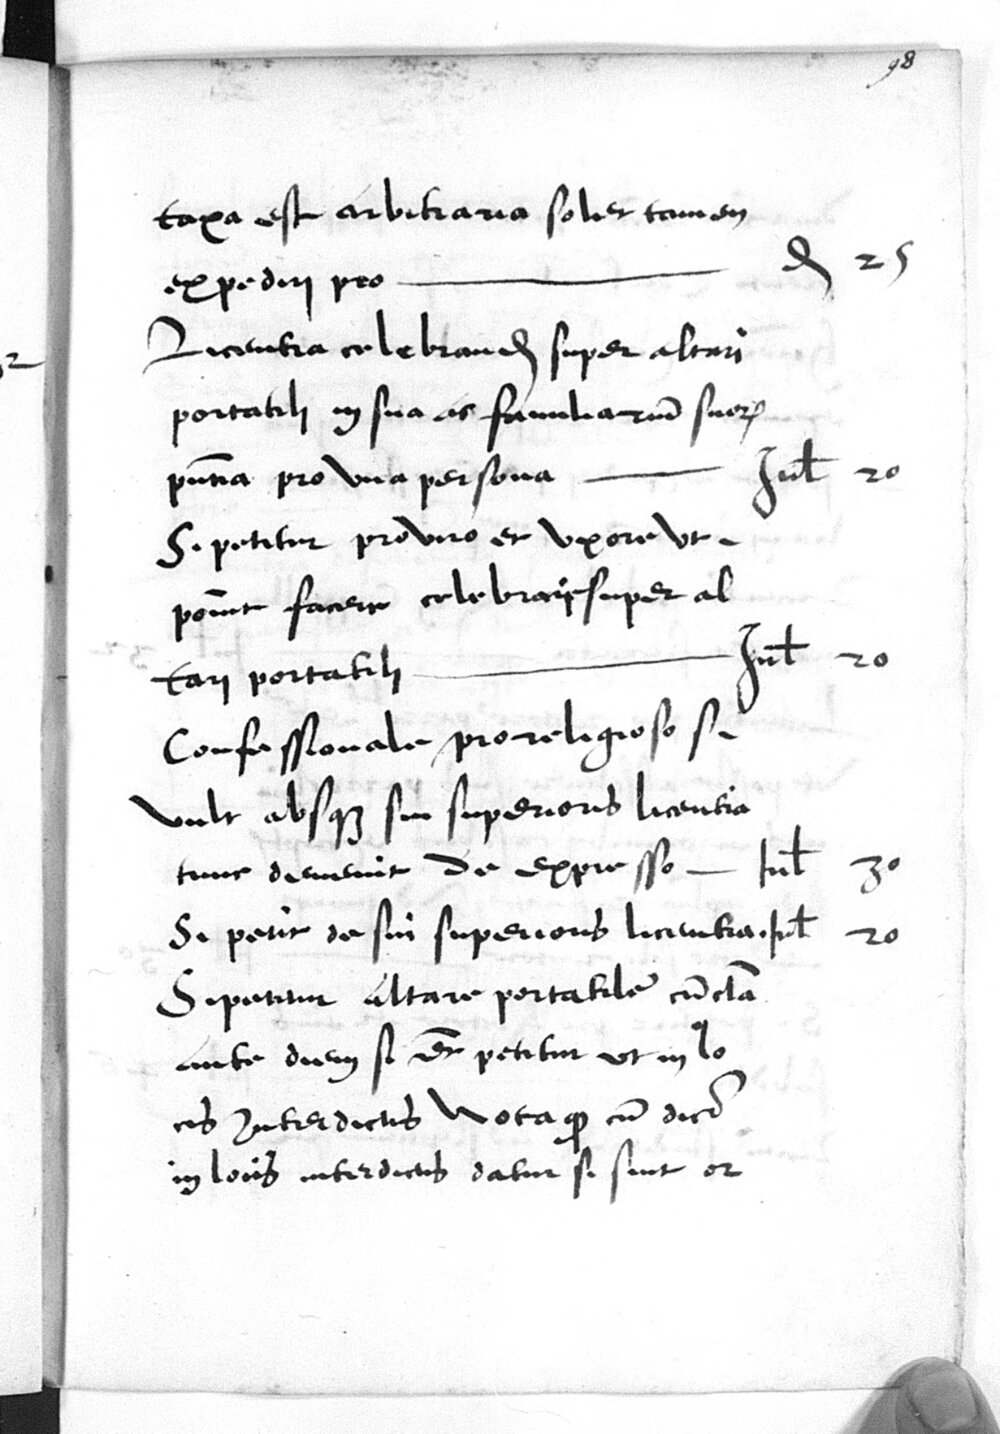 98
taxa est arbitraria solet tamen
expediri pro d 25
Licentia celebrand super altari
portatili in sua ac familiarium suor
pntia pro una persona Jul 20
Si petitur pro viro et uxore ut
possint facere celebrari super al
tari portatili Jul 20
Confessionale pro religioso si
vult absq sui superioris licentia
tunc devenit de expresso Jul 30
Si petit de sui superioris licentia Jul 20
Si petitur altare portatile cu cla
ante diem si et petitur ut in lo
cis Interdictis Nota q cu dicr
in locis interdictis datur si sint or